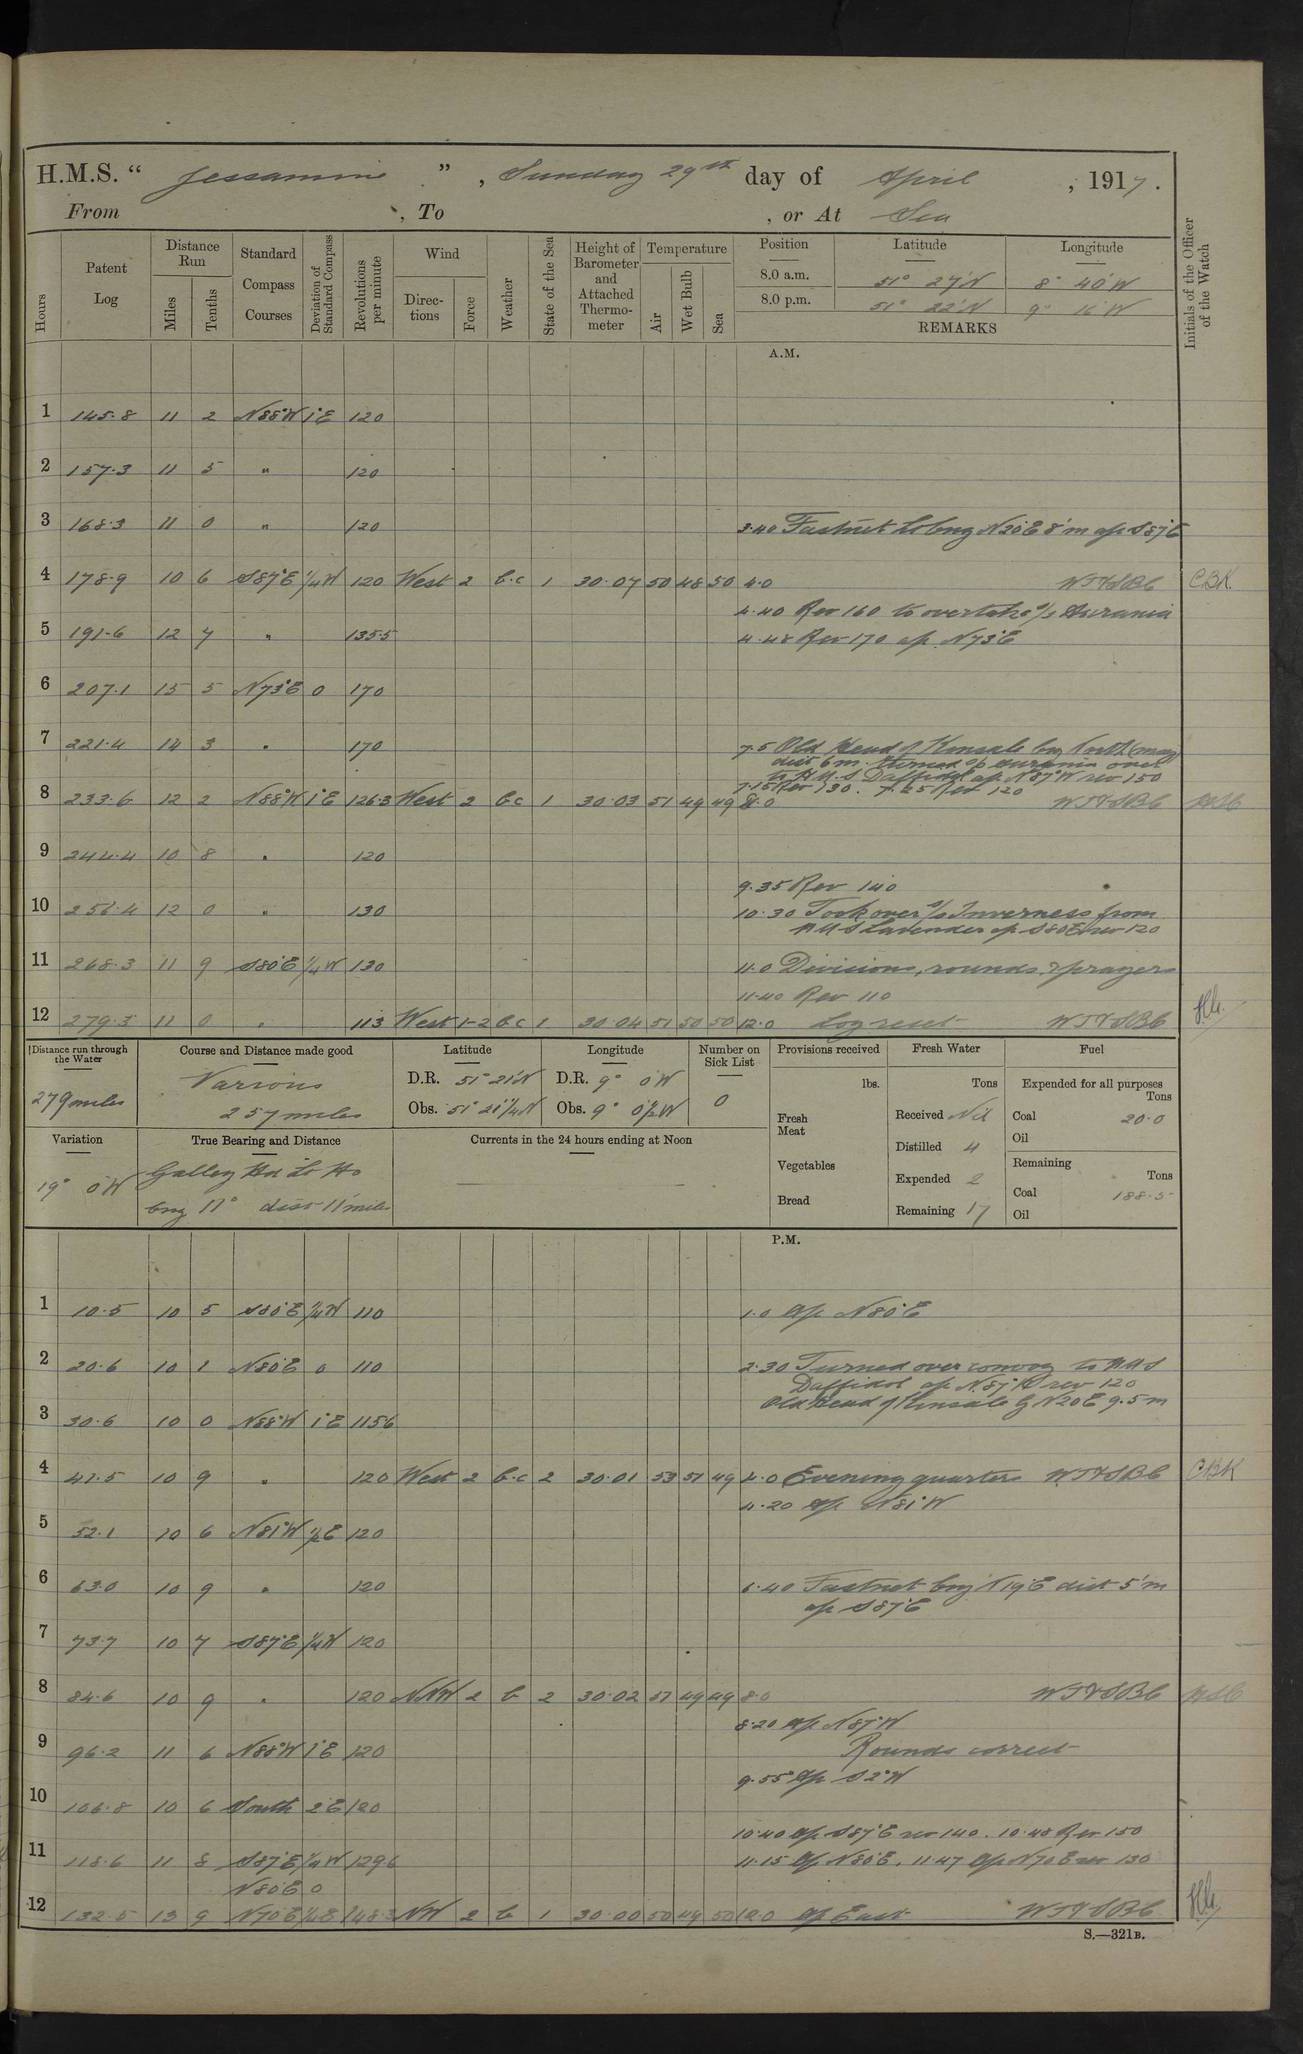 H.M.S. “ Jessamine ” , Sunday 29th day of April , 1917 .
From , To , or At Sea
Hours
Patent Log
Distance Run
Miles
Tenths
Standard Compass Courses
Deviation of Standard Compass
Revolutions per minute
Wind
Directions
Force
Weather
State of the Sea
Height of Barometer and Attached Thermometer
Temperature
Air
Wet Bulb
Sea
Position Latitude Longitude
8.0 a.m. 51° 27'N 8° 40'W
8.0 p.m. 51° 22'N 9° 16'W
REMARKS
Initials of the Officer of the Watch
A.M.
1 145.8 11 2 N88°W 1°E 120
2 157.3 11 5 " 120
3 168.3 11 0 " 120
3.40 Fastnet Lt brng N20°E 8'm a/c S87°E
4 178.9 10 6 S87°E 1/4W 120 West 2 b.c 1 30.07 50 48 50 4.0 WTVSBC CBK
4.40 Rev 160 to overtake s/s Aurania
5 191.6 12 7 " 135.5 4.48 Rev 170 a/c N73°E
6 207.1 15 5 N73°E 0 170
7 221.4 14 3 " 170 7.5 Old Head of Kinsale brg North (mag)
dist 6m. turned s/s Aurania over
to H.M.S Daffodil a/c N87°W rev 150
7.15 Rev 130. 7.25 Rev 120
8 233.6 12 2 N88°W 1°E 126.3 West 2 bc 1 30.03 51 49 49 8.0 WTVSBC
9 244.4 10 8 " 120
9.35 Rev 140
10 256.4 12 0 " 130 10.30 Took over s/s Inverness from
HMS Lavender a/c S80E rev 120
11 268.3 11 9 S80°E 1/4W 130 11.0 Divisions, rounds & prayers
11.40 Rev 110
12 279.3 11 0 " 113 West 1-2 bc 1 30.04 51 50 50 12.0 Log reset WTVSBC
Distance run through the Water
279 miles
Course and Distance made good
Various
257 miles
Latitude
D.R. 51° 21'N
Obs. 51° 21 1/4'N
Longitude
D.R. 9° 0'W
Obs. 9° 0 1/2'W
Number on Sick List
0
Provisions received
lbs.
Fresh Meat
Vegetables
Bread
Fresh Water
Tons
Received Nil
Distilled 4
Expended 2
Remaining 17
Fuel
Expended for all purposes
Tons
Coal 20.0
Oil
Remaining
Tons
Coal 188.5
Oil
Variation
19° 0'W
True Bearing and Distance
Galley Hd Lt Ho
brng 11° dist 11 miles
Currents in the 24 hours ending at Noon
P.M.
1 10.5 10 5 S80°E 1/4W 110 1.0 a/c N80°E
2 20.6 10 1 N80°E 0 110 2.30 Turned over convoy to HMS
Daffodil a/c N.87°W rev 120
Old Head of Kinsale N20E 9.5m
3 30.6 10 0 N88°W 1°E 115.6
4 41.5 10 9 " 120 West 2 b.c 2 30.01 53 51 49 4.0 Evening quarters WTVSBC CBK
4.20 a/c N81°W
5 52.1 10 6 N81°W 1/2E 120
6 63.0 10 9 " 120 6.40 Fastnet brng N19°E dist 5'm
a/c S87°E
7 73.7 10 7 S87°E 1/4W 120
8 84.6 10 9 " 120 NNW 2 b 2 30.02 51 49 49 8.0 WTVSBC
8.20 a/c N87°W
9 96.2 11 6 N88°W 1°E 120 Rounds correct
9.55 a/c S2°W
10 106.8 10 6 South 2E 120
10.40 a/c S87°E rev 140. 10.48 Rev 150
11 118.6 11 8 S87°E 1/4W 129.6 11.15 a/c N80°E. 11.47 a/c N70E rev 130
N80E 0
12 132.5 13 9 N70°E 1/4E 148.3 NW 2 b 1 30.00 50 49 50 12.0 a/c East WTVSBC
S.—321B.